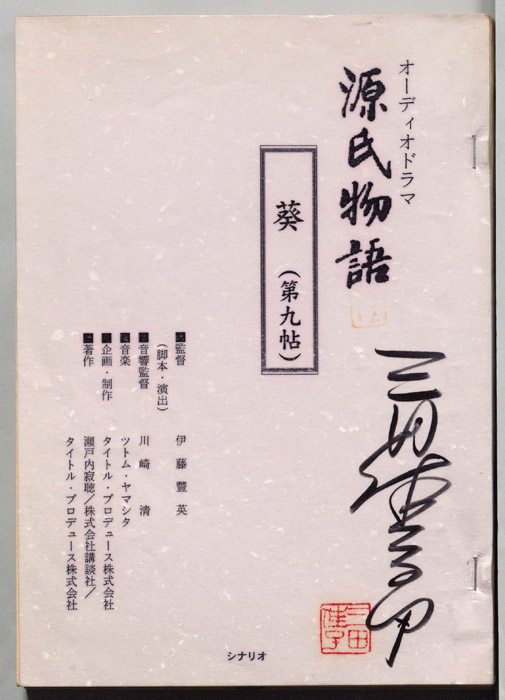 オーディオドラマ
源氏物語
葵 (第九帖)
監督 伊藤豐英
(脚本・演出)
音響監督 川崎 清
音楽 ツトム・ヤマシタ
企画・制作 タイトル・プロデュース株式会社
著作 瀬戸内寂聴/株式会社講談社/
タイトル・プロデュース株式会社
三田
佳子
シナリオ